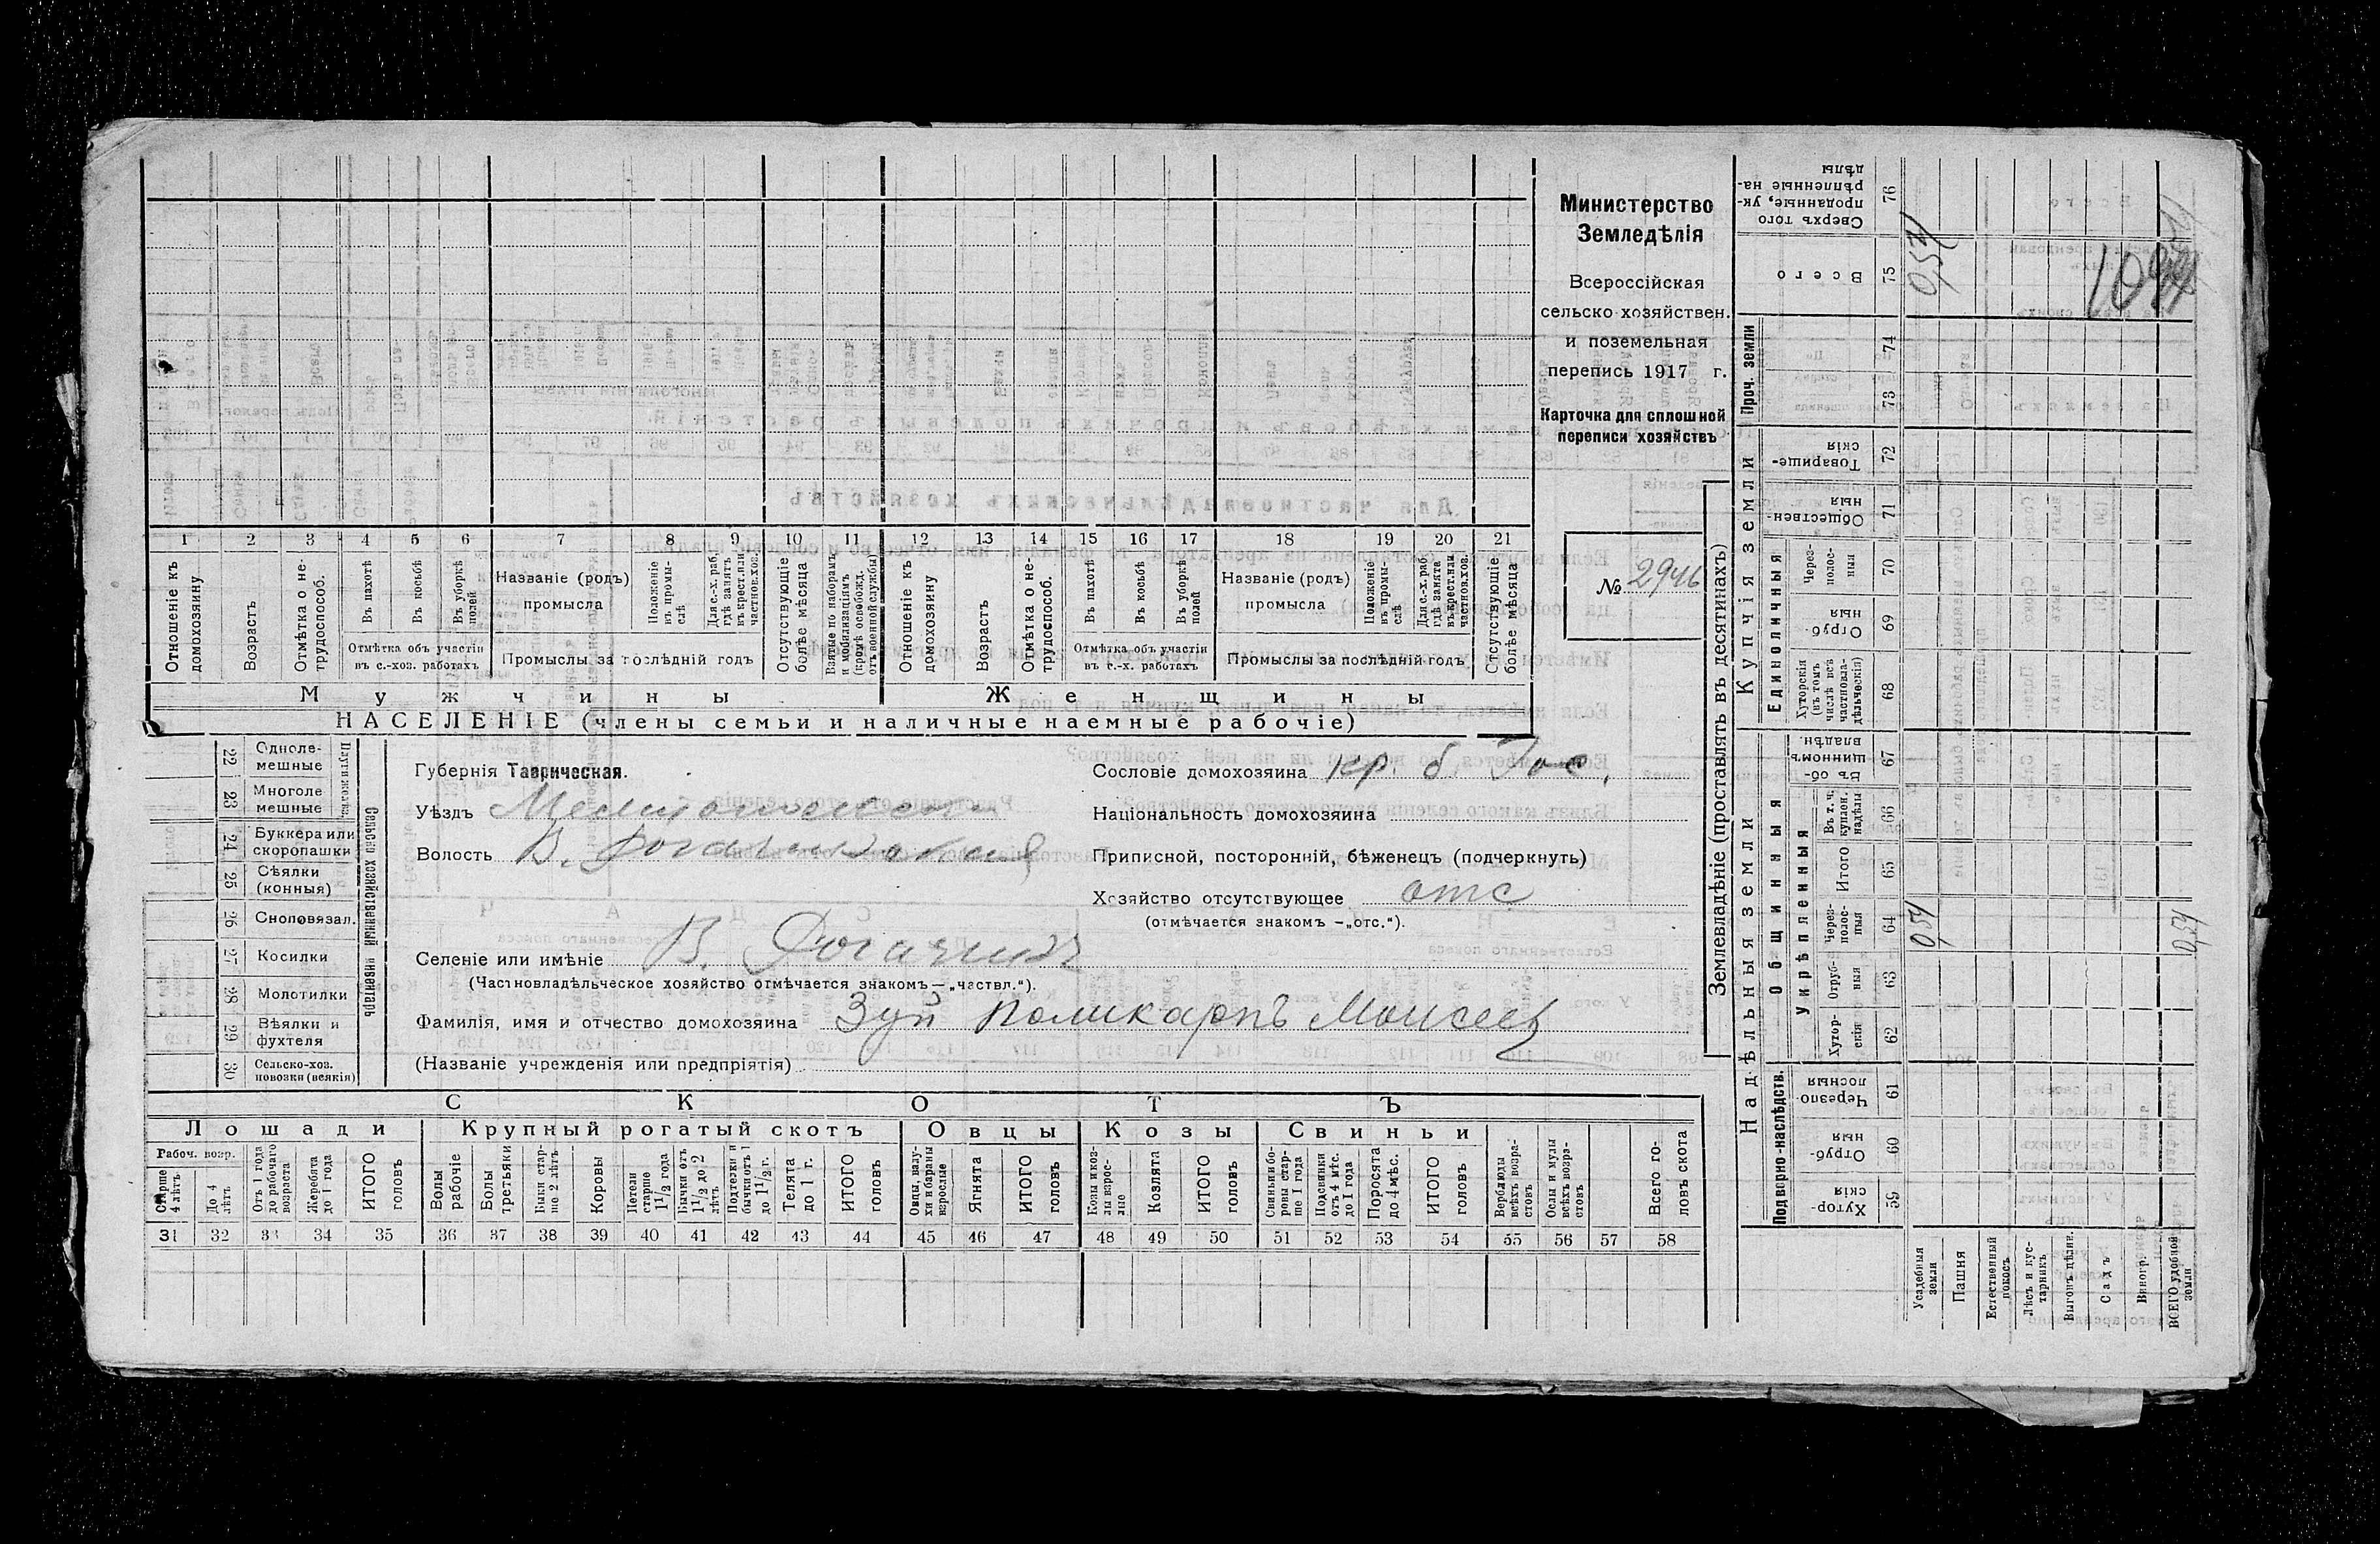 Министерство
Земледѣлія
Всероссійская
сельско хозяйствен.
и поземельная
перепись 1917 г.
Карточка для сплошной
переписи хозяйствъ
№ 2946
1 2 3 4 5 6 7 8 9 10 11 12 13 14 15 16 17 18 19 20 21
Отношеніе къ домохозяину
Возрастъ
Отмѣтка о не-трудоспособ.
Въ пахотѣ
Въ косьбѣ
Въ уборкѣ полей
Отмѣтка объ участіи
въ с.-хоз. работахъ
Названіе (родъ)
промысла
Положеніе въ промы-слѣ
Для с.-х. раб. гдѣ занятъ въ крест. или частнов. хоз.
Промыслы за послѣдній годъ
Отсутствующіе болѣе мѣсяца
Взятые по наборамъ и мобилизаціямъ (кромѣ освобожд. отъ военной службы)
Отношеніе къ домохозяину
Возрастъ
Отмѣтка о не-трудоспособ.
Въ пахотѣ
Въ косьбѣ
Въ уборкѣ полей
Отмѣтка объ участіи
въ с.-х. работахъ
Названіе (родъ)
промысла
Положеніе въ промы-слѣ
Для с.-х. раб. гдѣ занята въ крест. или частнов. хоз.
Промыслы за послѣдній годъ
Отсутствующіе болѣе мѣсяца
Мужчины
Женщины
НАСЕЛЕНІЕ (члены семьи и наличные наемные рабочіе)
Сельско хозяйственный инвентарь
22 Одноле-мешные
23 Многоле мешные
24 Буккера или скоропашки
25 Сѣялки (конныя)
26 Сноповязал.
27 Косилки
28 Молотилки
29 Вѣялки и фухтеля
30 Сельско-хоз. повозки (всякія)
Губернія Таврическая.
Уѣздъ
Волость В. Рогачикская
Селеніе или имѣніе В. Рогачикъ
(Частновладѣльческое хозяйство отмѣчается знакомъ—„частвл.“).
Фамилія, имя и отчество домохозяина Зуй Поликарпъ Моисеев
(Названіе учрежденія или предпріятія)
Сословіе домохозяина кр. б. Гос.
Національность домохозяина
Приписной, посторонній, бѣженецъ (подчеркнуть)
Хозяйство отсутствующее отс
(отмѣчается знакомъ —„отс.“).
СКОТЪ
Лошади
Крупный рогатый скотъ
Овцы
Козы
Свиньи
Рабоч. возр.
Старше 4 лѣтъ
До 4 лѣтъ
Отъ 1 года до рабочаго возраста
Жеребята до 1 года
ИТОГО головъ
Волы рабочіе
Волы третьяки
Быки стар-ше 2 лѣтъ
Коровы
Нетели старше 1½ года
Бычки отъ 1½ до 2 лѣтъ
Подтелки и бычки отъ 1 до 1½ г.
Телята до 1 г.
ИТОГО головъ
Овцы, валу-хи и бараны взрослые
Ягнята
ИТОГО головъ
Козы и коз-лы взрос-лые
Козлята
ИТОГО головъ
Свиньи и бо-ровы стар-ше 1 года
Подсвинки отъ 4 мѣс. до 1 года
Поросята до 4 мѣс.
ИТОГО головъ
Верблюды всѣхъ возра-стовъ
Ослы и мулы всѣхъ возра-стовъ
Всего го-ловъ скота
31 32 33 34 35 36 37 38 39 40 41 42 43 44 45 46 47 48 49 50 51 52 53 54 55 56 57 58
Землевладѣніе (проставлять въ десятинахъ)
Надѣльныя земли
Купчія земли
Проч. земли
Подворно-наслѣдств.
Общинныя
Укрѣпленныя
Единоличныя
Сверхъ того проданные, ук-рѣпленные на-дѣлы 76
Всего 75 0,54
74
73
Товарище-скія 72
Обществен-ныя 71
Через-полос-ныя 70
Отруб-ныя 69
Хуторскія (въ томъ числѣ всѣ частновла-дѣльческія) 68
Въ об-щинномъ владѣн. 67
Въ т. ч. купчен. надѣлы 66
Итого 65
Через-полос-ныя 64 0,54 0,54
Отруб-ныя 63
Хутор-скія 62
Черезпо-лосныя 61
Отруб-ныя 60
Хутор-скія 59
Усадебныя земли
Пашня
Естественный покосъ
Лѣсъ и кус-тарникъ
Выгонъ дѣлин.
Садъ
Виногр.
ВСЕГО удобной земли